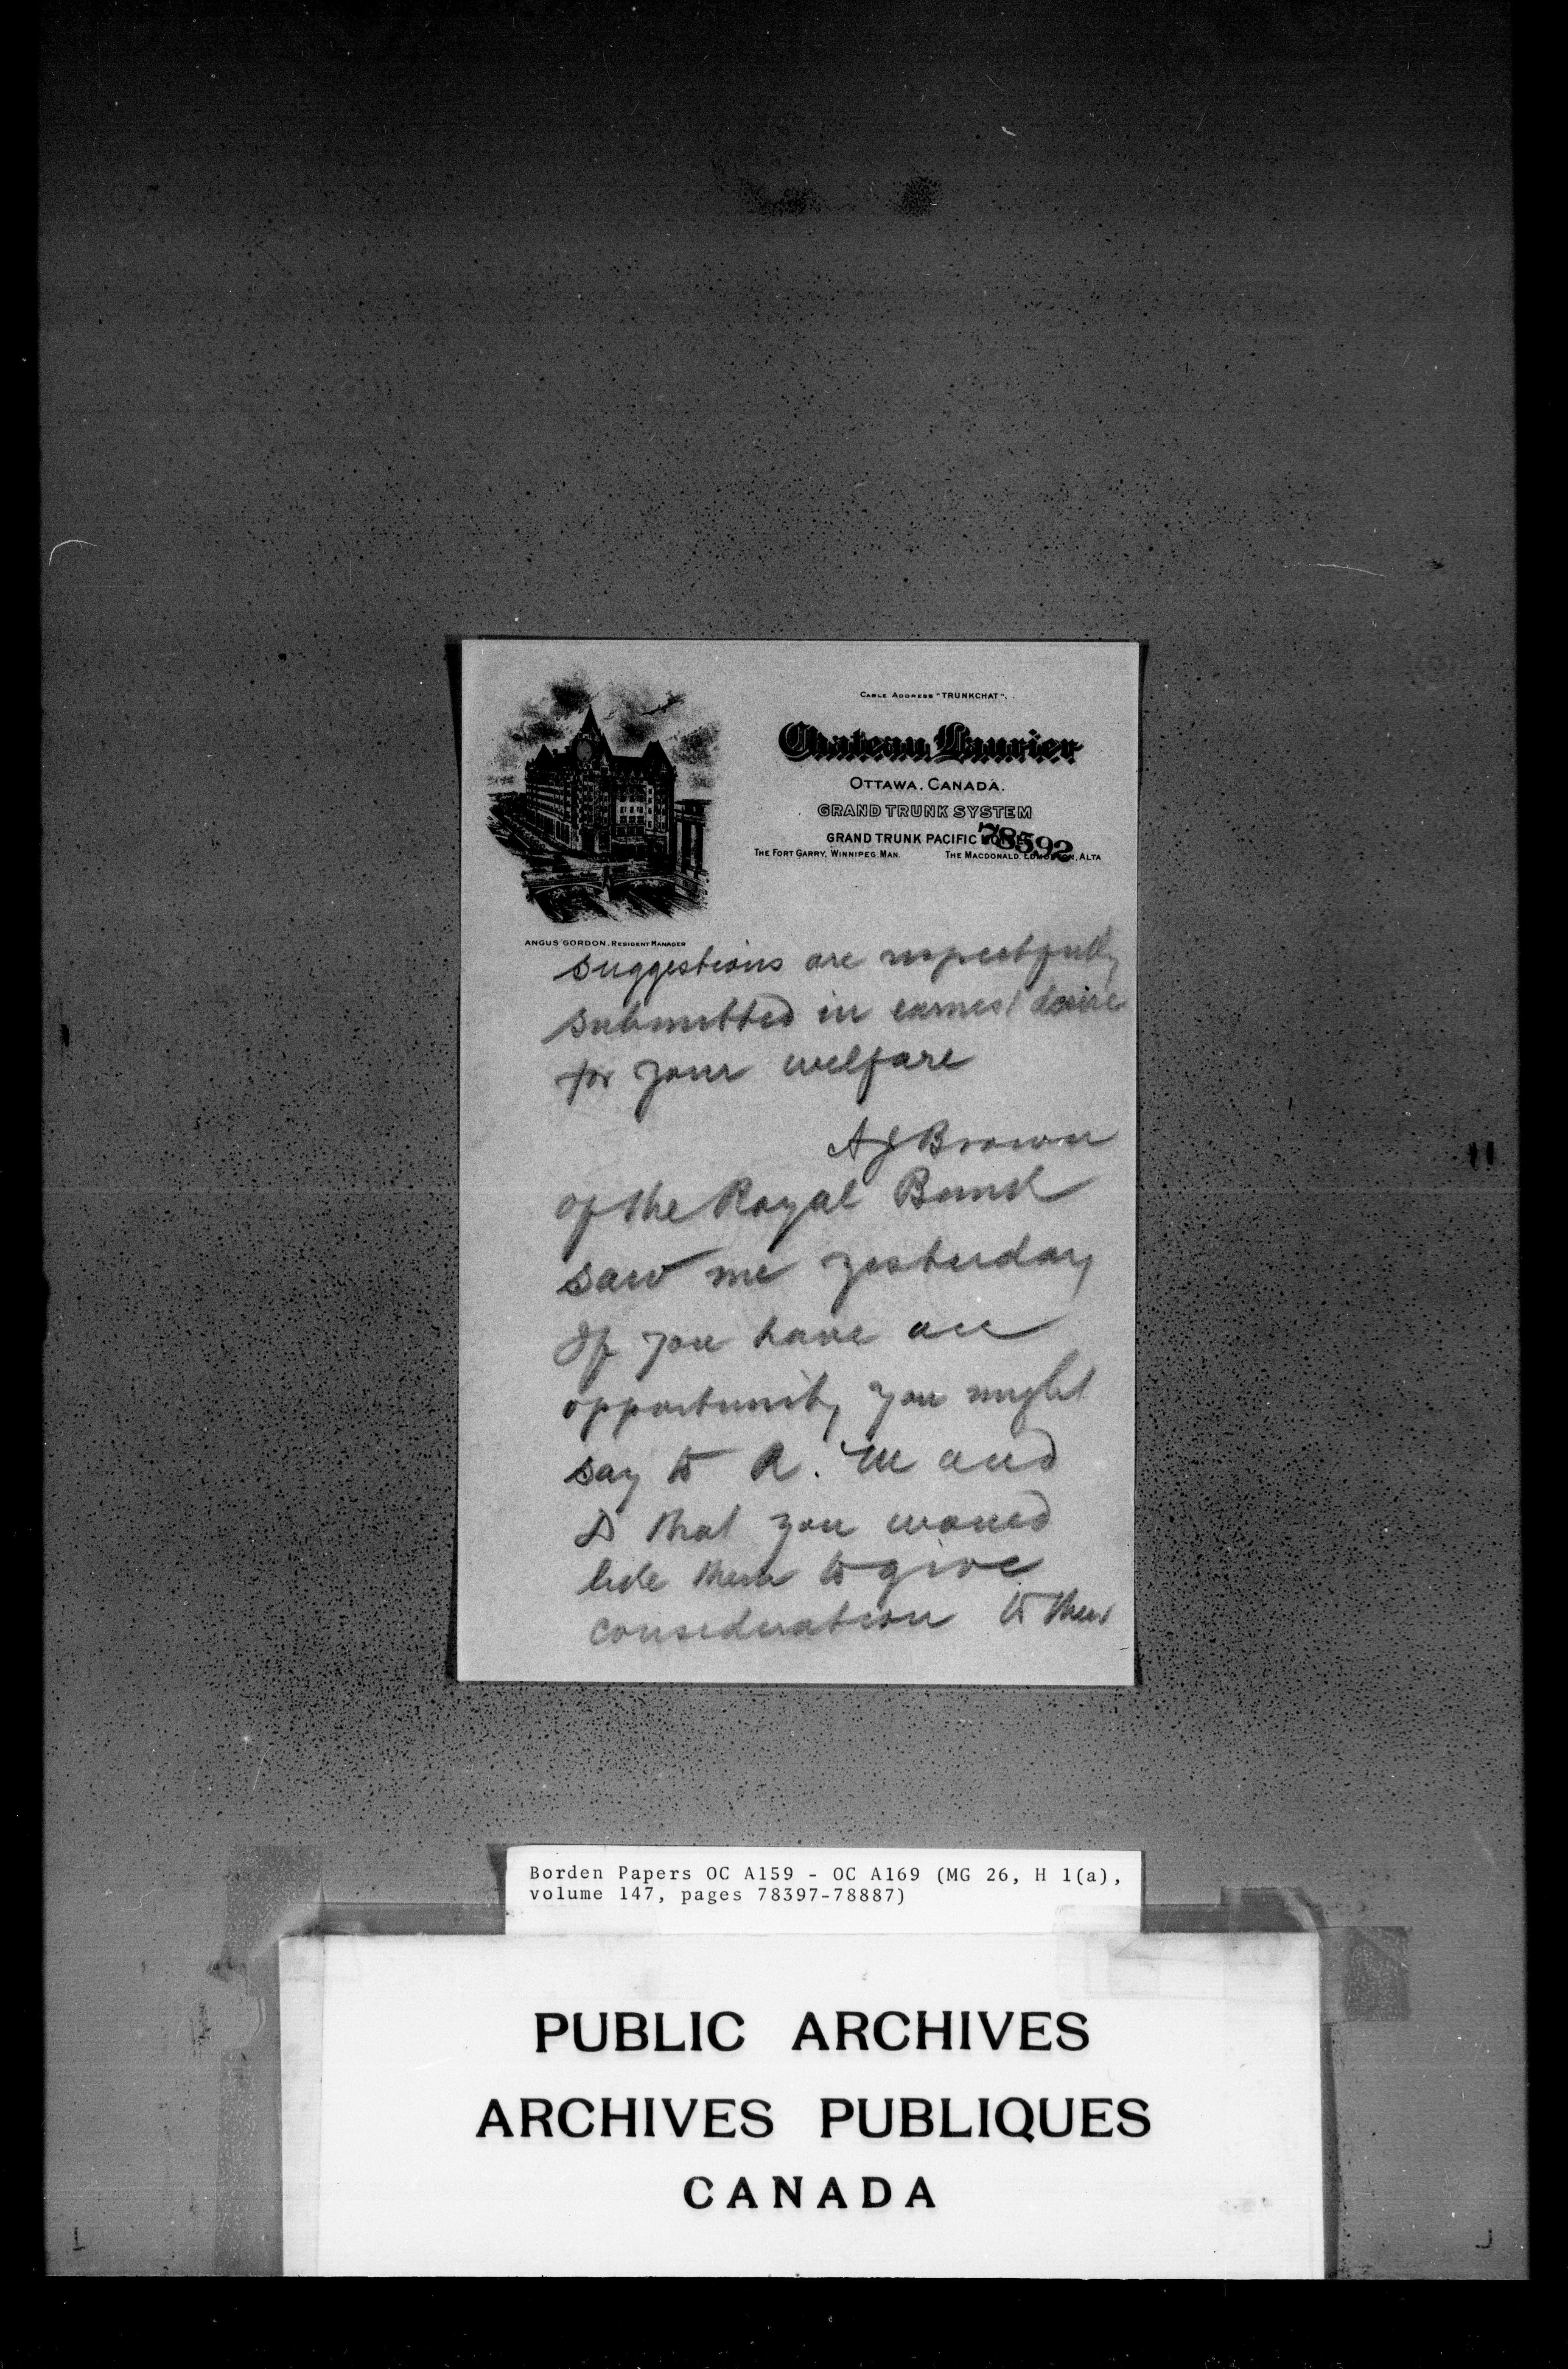 CABLE ADDRESS "TRUNKCHAT".
Chateau Laurier
OTTAWA, CANADA.
GRAND TRUNK SYSTEM
GRAND TRUNK PACIFIC
78592
THE FORT GARRY, WINNIPEG MAN. THE MACDONALD, EDMONTON, ALTA
ANGUS GORDON, RESIDENT MANAGER
suggestions are respectfully
submitted in earnest desire
for your welfare
A J Brown
of the Royal Bank
saw me yesterday
If you have an
opportunity you might
say to R. M and
D that you would
like them to give
consideration to their
Borden Papers OC A159 - OC A169 (MG 26, H 1(a),
volume 147, pages 78397-78887)
PUBLIC ARCHIVES
ARCHIVES PUBLIQUES
CANADA